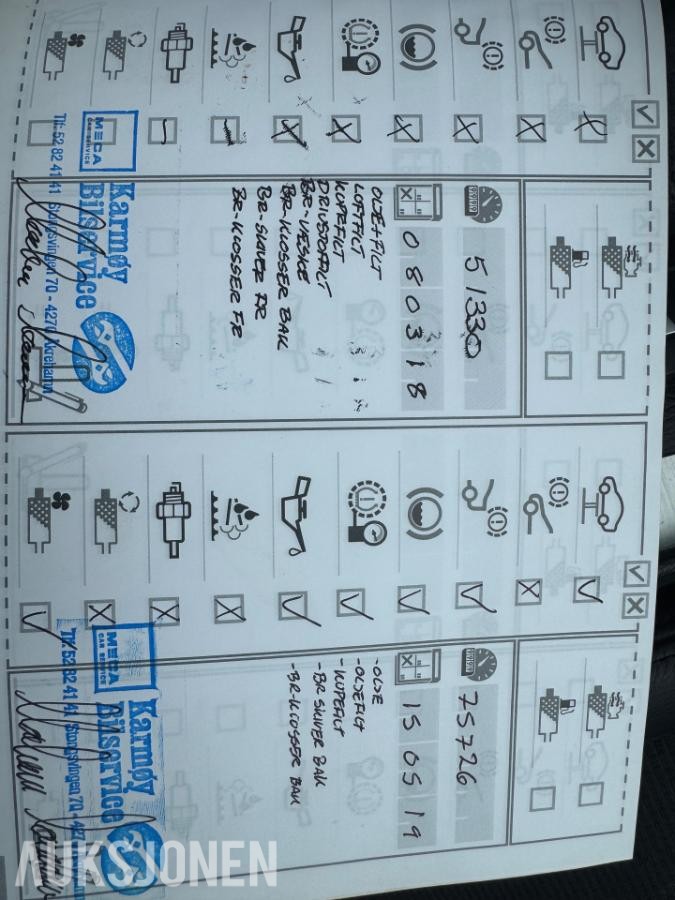 51330
08 03 18
OLJE+FILT
LUFTFILT
KUPEFILT
DRIVSTOFFILT
BR-VÆSKE
BR-KLOSSER BAK
BR-SKIVER FR
BR-KLOSSER FR
MECA
CAR SERVICE
Karmøy
Bilservice
Tlf: 52 82 41 41 Storasvingen 70 - 4270 Åkrehamn
75726
15 05 19
-OLJE
-OLJEFILT
-KUPEFILT
-BR SKIVER BAK
-BR-KLOSSER BAK
MECA
CAR SERVICE
Karmøy
Bilservice
Tlf: 52 82 41 41 Storasvingen 70 - 427
AUKSJONEN